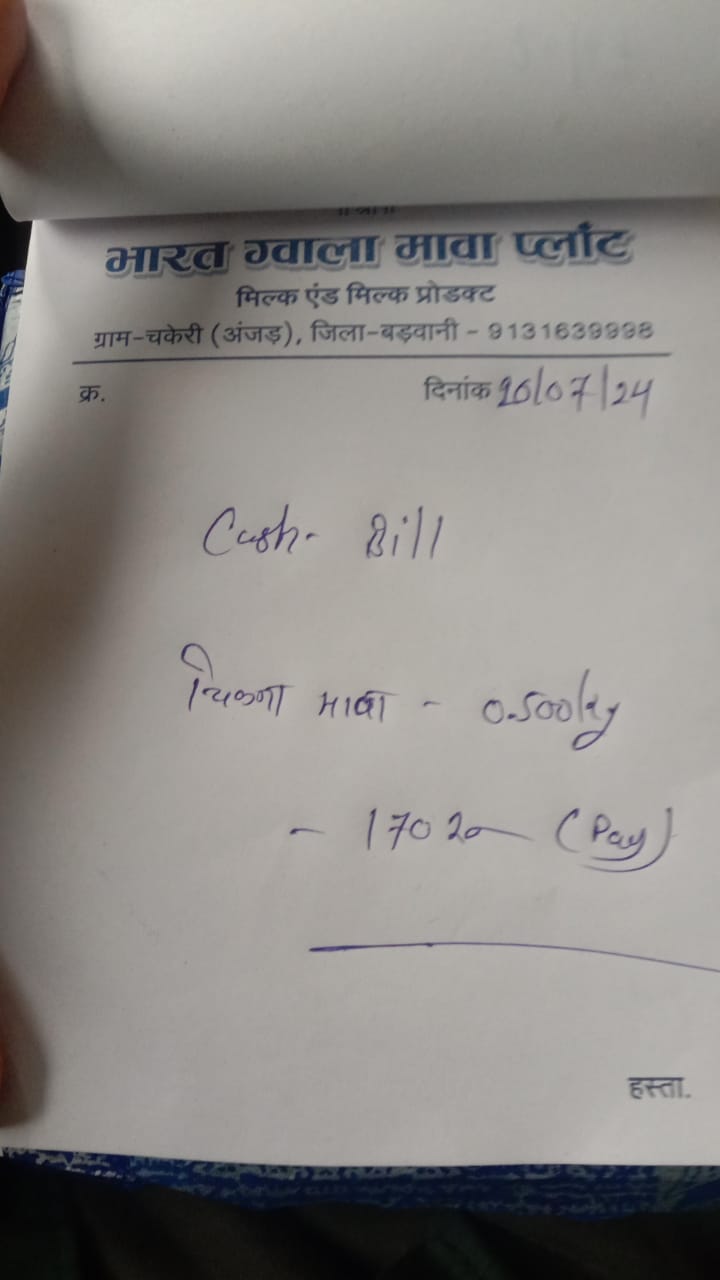 भारत ग्वाला मावा प्लांट
मिल्क एंड मिल्क प्रोडक्ट
ग्राम-चकेरी (अंजड़), जिला-बड़वानी - 9131639998
क्र. दिनांक /07/24
Cash- Bill
चिकना मावा - 0.500kg
- 170 (Pay)
हस्ता.